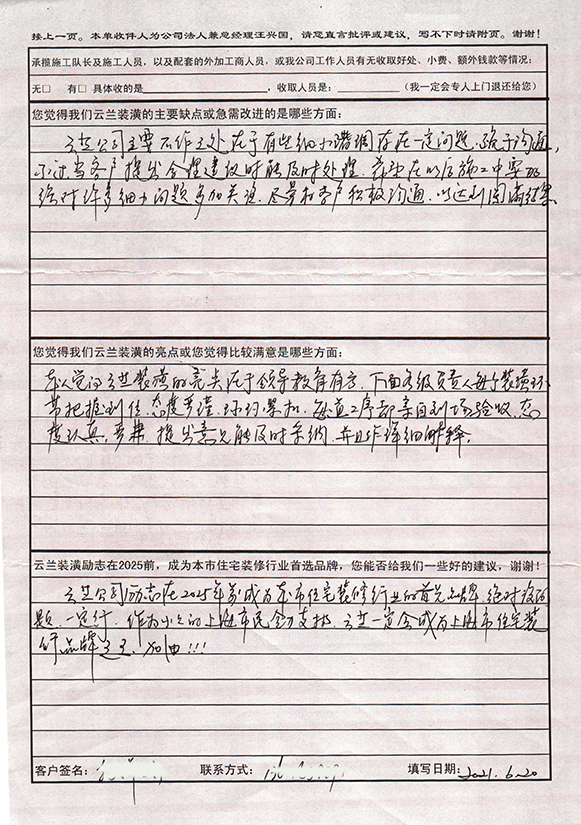 接上一页。本单收件人为公司法人兼总经理汪兴国，请您直言批评或建议，写不下时请附页。谢谢！
承揽施工队长及施工人员，以及配套的外加工商人员，或我公司工作人员有无收取好处、小费、额外钱款等情况：
无□ 有□ 具体收的是＿＿＿＿＿＿＿＿，收取人员是：＿＿＿＿＿＿（我一定会专人上门退还给您）
您觉得我们云兰装潢的主要缺点或急需改进的是哪些方面：
云兰公司主要不作之处在于有些细小 存在一定问题，疏于沟通，
不过当客户提出合理建议时能及时处理。希望在以后施工中要
绝对许多细小问题多加关注，尽量和客户积极沟通，以达到圆满结果。
您觉得我们云兰装潢的亮点或您觉得比较满意是哪些方面：
本人觉得云兰装潢的亮点在于领导教育有方，下面各级负责人每个装潢环
节把握到位，态度严谨，环环紧扣，每道工序都亲自到场验收，态
度认真，提出意见能及时采纳，并且作详细解释。
云兰装潢励志在2025前，成为本市住宅装修行业首选品牌，您能否给我们一些好的建议，谢谢！
云兰公司历志在2025年前成为本市住宅装修行业的首先品牌，绝对没问
题，一定行，作为小小的上海市民全力支持，云兰一定会成为上海市住宅装
修品牌之王，加油!!!
客户签名： 联系方式： 填写日期：2021.6-20